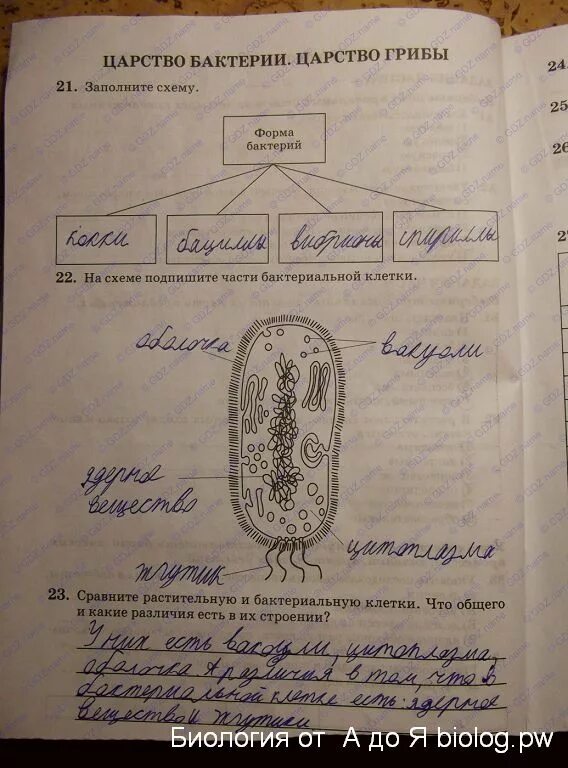 ЦАРСТВО БАКТЕРИИ. ЦАРСТВО ГРИБЫ
21. Заполните схему.
Форма
бактерий
кокки бациллы вибрионы спириллы
22. На схеме подпишите части бактериальной клетки.
оболочка вакуоли
ядерное
вещество
цитоплазма
жгутик
23. Сравните растительную и бактериальную клетки. Что общего
и какие различия есть в их строении?
У них есть вакоули, цитоплазма,
оболочка А различия в том, что в
бактериальной клетке есть: ядерное
вещество и жгутики
24.
25
26
2
Биология от А до Я biolog.pw
© GDZ.name